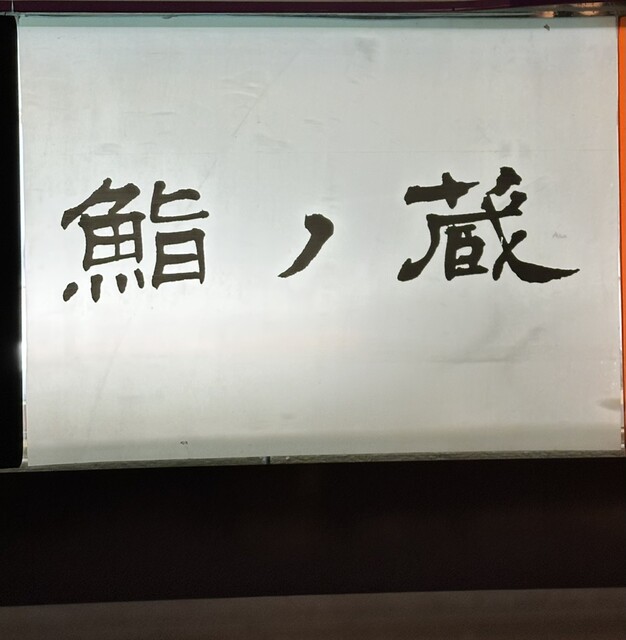 鮨ノ蔵